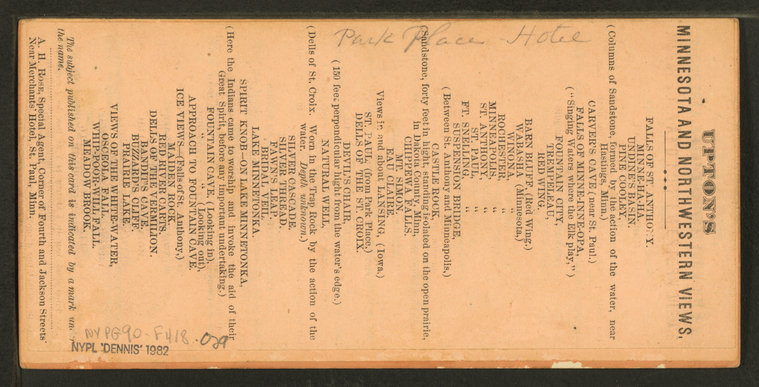 UPTON'S
MINNESOTA AND NORTHWESTERN VIEWS,
FALLS OF ST. ANTHONY.
MINNE-HA-HA.
UKDNIS-SA-BIN.
PINE COOLEY,
(Columns of Sandstone, formed by the action of the water, near Hastings.)
CARVER'S CAVE (near St. Paul.)
FALLS OF MINNE-INNE-OPA,
("Singing Waters where the Elk play,")
FOUNTAIN CITY,
TREMPELEAU,
RED WING,
BARN BLUFF, (Red Wing.)
WINONA, (Minnesota,)
ROCHESTER, "
MINNEAPOLIS, "
ST. ANTHONY, "
ST. PAUL, "
FT. SNELLING, "
SUSPENSION BRIDGE,
(Between St. Anthony and Minneapolis,)
CASTLE ROCK,
(Sandstone, forty feet in hight, standing isolated on the open prairie,
in Dakota County, Minn.
CHIPPEWA FALLS.
MT. SIMON,
EAU CLAIRE.
Views in and about LANSING, (Iowa.)
ST. PAUL, (from Park Place,)
DELLS OF THE ST. CROIX.
DEVIL'S CHAIR,
(150 feet perpendicular hight from the water's edge.)
NATURAL WELL,
(Dells of St. Croix. Worn in the Trap Rock by the action of the
water. Depth unknown.)
SILVER CASCADE.
SILVER THREAD.
FAWN'S LEAP.
BRIDAL VEIL.
LAKE MINNETONKA.
SPIRIT KNOB—ON LAKE MINNETONKA.
(Here the Indians came to worship and invoke the aid of their
Great Spirit, before any important undertaking.)
FOUNTAIN CAVE, (Looking in),
" " (Looking out),
APPROACH TO FOUNTAIN CAVE.
ICE VIEWS—(Falls of St. Anthony,)
RED RIVER CARTS.
DELLS OF THE VERMILION.
BUZZARD'S CLIFF.
BEAR LAKE.
VIEWS OF THE WHITE-WATER,
OSCEOLA FALL.
WHIP-POOR-WILL FALL.
MEADOW BROOK.
The subject published on this card is indicated by a mark under
the name.
A. H. Rose, Special Agent, Corner of Fourth and Jackson Streets
Near Merchants' Hotel, St. Paul, Minn.
Park Place Hotel
NYPG90-F418
NYPL 'DENNIS' 1982